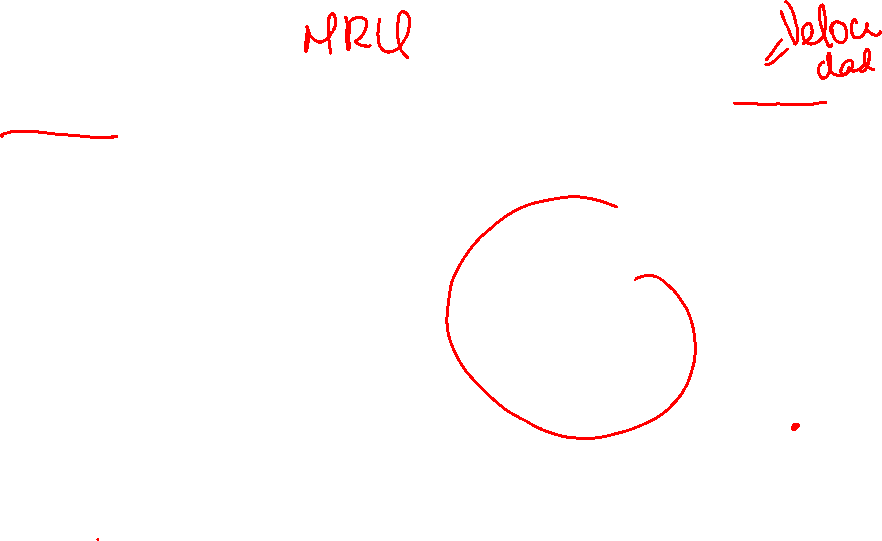 MRU
Veloci
dad